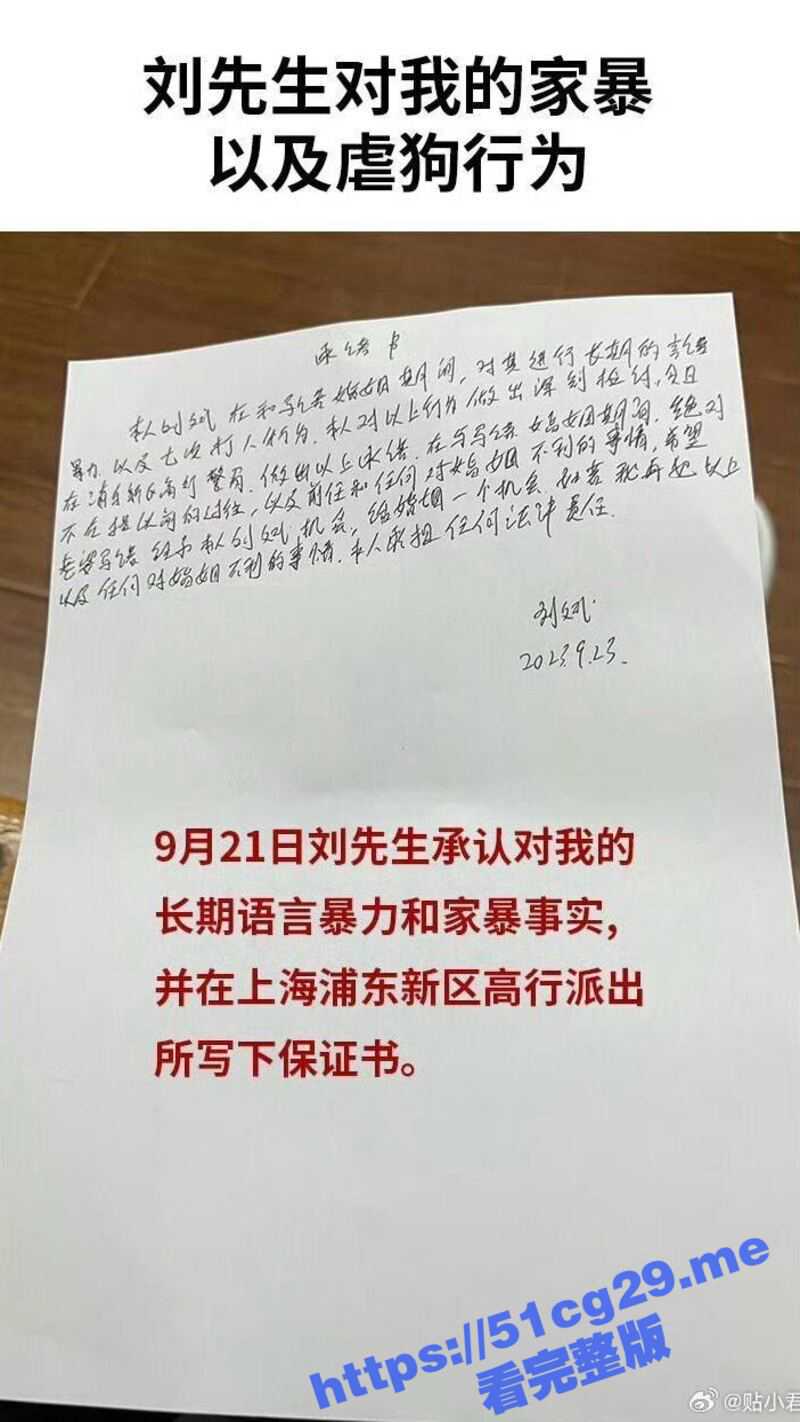 刘先生对我的家暴
以及虐狗行为
承诺书
本人刘 在和 婚姻期间,对其进行长期的言语
暴力.以及七次打人行为.本人对以上行为做出深刻检讨,今日
在浦东新区高行警局.做出以上承诺.在与 婚姻期间.绝对
不在提以前的过往,以及前任和任何对婚姻不利的事情,希望
老婆 给予本人刘 机会,给婚姻一个机会.如若我再犯以上
以及任何对婚姻不利的事情.本人承担任何法律责任.
刘
2023.9.23.
9月21日刘先生承认对我的
长期语言暴力和家暴事实,
并在上海浦东新区高行派出
所写下保证书。
https://51cg29.me
看完整版
@贴小君